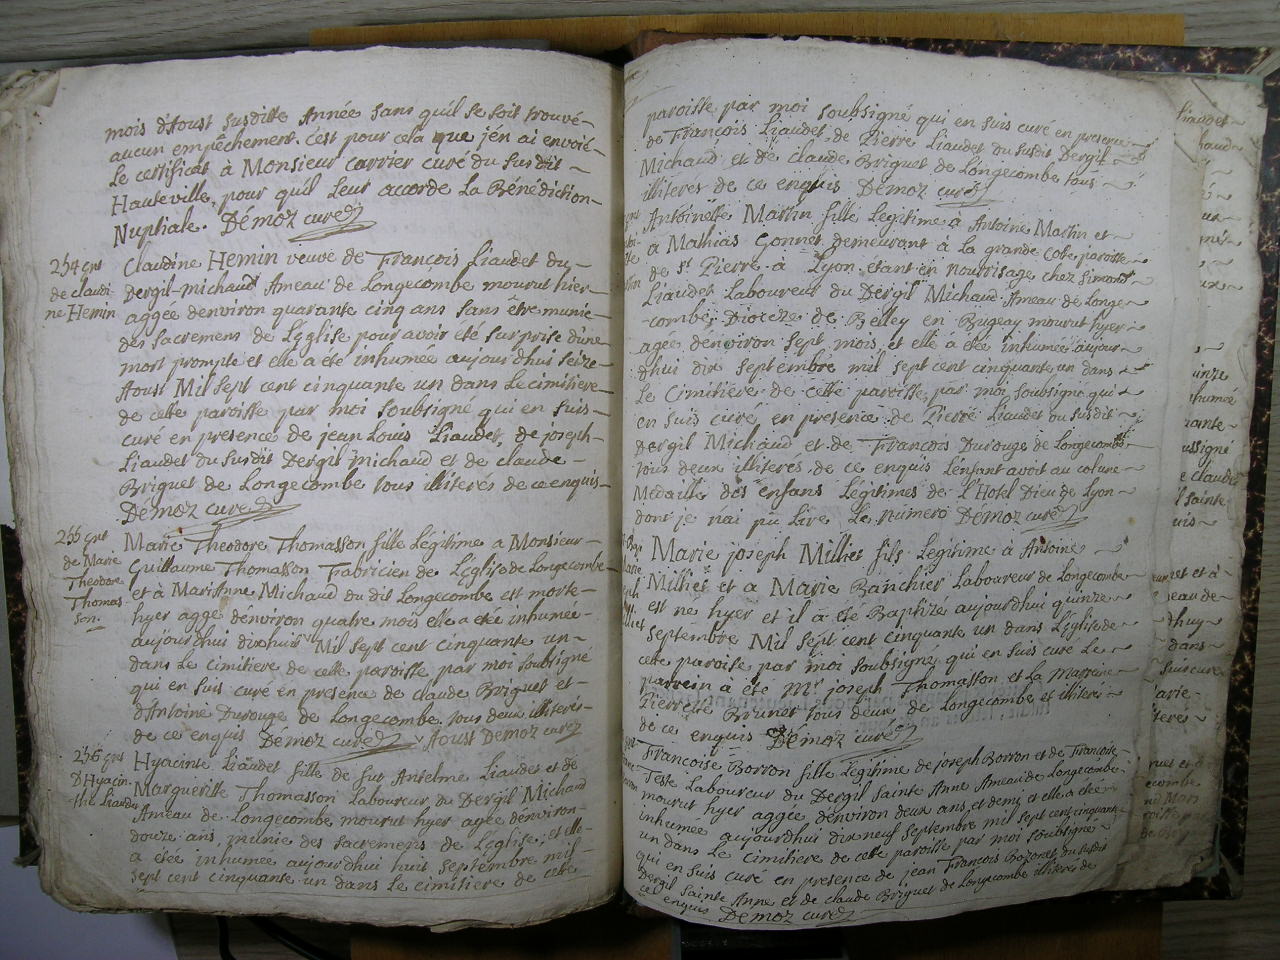 mois d'Aoust susditte Année sans qu'il se soit trouvé
aucun empêchement. c'est pour cela que j'en ai envoié
Le certificat à Monsieur Carrier curé du susdit
Hauteville, pour qu'il leur accorde La Bénédiction
Nuptiale. Démoz curé
254 ent
de claudi
ne Hemin
Claudine Hemin veuve de François Liaudet du
Dergil-Michaud Ameau de Longecombe mourut hier
aggée denviron quarante cinq ans sans être munie
des sacremens de L'Église pour avoir été surprise d'une
mort prompte et elle a été inhumée aujourd'hui seize
Aoust Mil sept cent cinquante un dans Le cimitiere
de cette paroisse par moi soubsigné qui en suis
curé en presence de jean Louis Liaudet, de joseph
Liaudet du susdit Dergil Michaud et de claude
Briguet de Longecombe tous illiterés de ce enquis
Démoz curé
255 ent
de Marie
Theodore
Thomas
son.
Marie Theodore Thomasson fille Légitime a Monsieur
Guillaume Thomasson Fabricien de L'Église de Longecombe
et à Marianne Michaud du dit Longecombe est morte
hyer aggé denviron quatre mois elle a été inhumée
aujourd'hui dixhuit Mil sept cent cinquante un
dans Le cimitiere de cette paroisse par moi soubsigné
qui en suis curé en presence de claude Briguet et
d'Antoine Durouge de Longecombe. tous deux illiterés
de ce enquis Démoz curé Aoust Démoz curé
256 ent
d'Hyacin
the Liaudet
Hyacinte Liaudet fille de fut Antelme Liaudet et de
Margueritte Thomasson Laboureur du Dergil Michaud
Ameau de Longecombe mourut hyer agée denviron
douze ans, munie des sacremens de L'Église; et elle
a étée inhumée aujourdhui huit septembre mil
sept cent cinquante un dans Le cimitiere de cette
paroisse par moi soubsigné qui en suis curé en presence
de François Liaudet, de Pierre Liaudet du susdit Dergil
Michaud et de claude Briguet de Longecombe tous
illiterés de ce enquis Démoz curé
Antoinette Martin fille Legitime à Antoine Martin et
à Mathias Gonnet demeurant à la grande Cote paroisse
de St Pierre à Lyon étant en nourrisage chez Simond
Liaudet Laboureur du Dergil Michaud Ameau de Longe
combe, Dioceze de Belley en Bugeay mourut hyer
agée denviron sept mois et elle a été inhumée aujour
d'hui dix septembre mil sept cent cinquante un dans
Le Cimitiere de cette paroisse, par moi soubsigné qui
en suis curé en presence de Pierre Liaudet du susdit
Dergil Michaud et de François Durouge de Longecombe
tous deux illiterés de ce enquis L'enfant avoit au col une
Médaille des enfans Légitimes de L'Hotel Dieu de Lyon
dont je n'ai pu Lire Le numero Démoz curé
Marie joseph Milliet fils Legitime à Antoine
Milliet et a Marie Banchier Laboureur de Longecombe
est né hyer et il a été Baptizé aujourdhui quinze
septembre Mil sept cent cinquante un dans L'Église de
cette paroisse par moi soubsigné qui en suis curé Le
parrein a été Mr joseph Thomasson et La Marreine
Pierrette Brunet tous deux de Longecombe et illiterés
de ce enquis Démoz curé
Françoise Borron fille Légitime de joseph Borron et de Françoise
Teste Laboureur du Dergil Sainte Anne Ameau de Longecombe
mourut hyer aggée denviron deux ans, et demi et elle a été
inhumée aujourdhui dixneuf septembre mil sept cent cinquante
un dans Le cimitiere de cette paroisse par moi soubsigné
qui en suis curé en presence de jean François Bozonet du susdit
Dergil Sainte Anne et de claude Briguet de Longecombe illiterés de
ce enquis Démoz curé